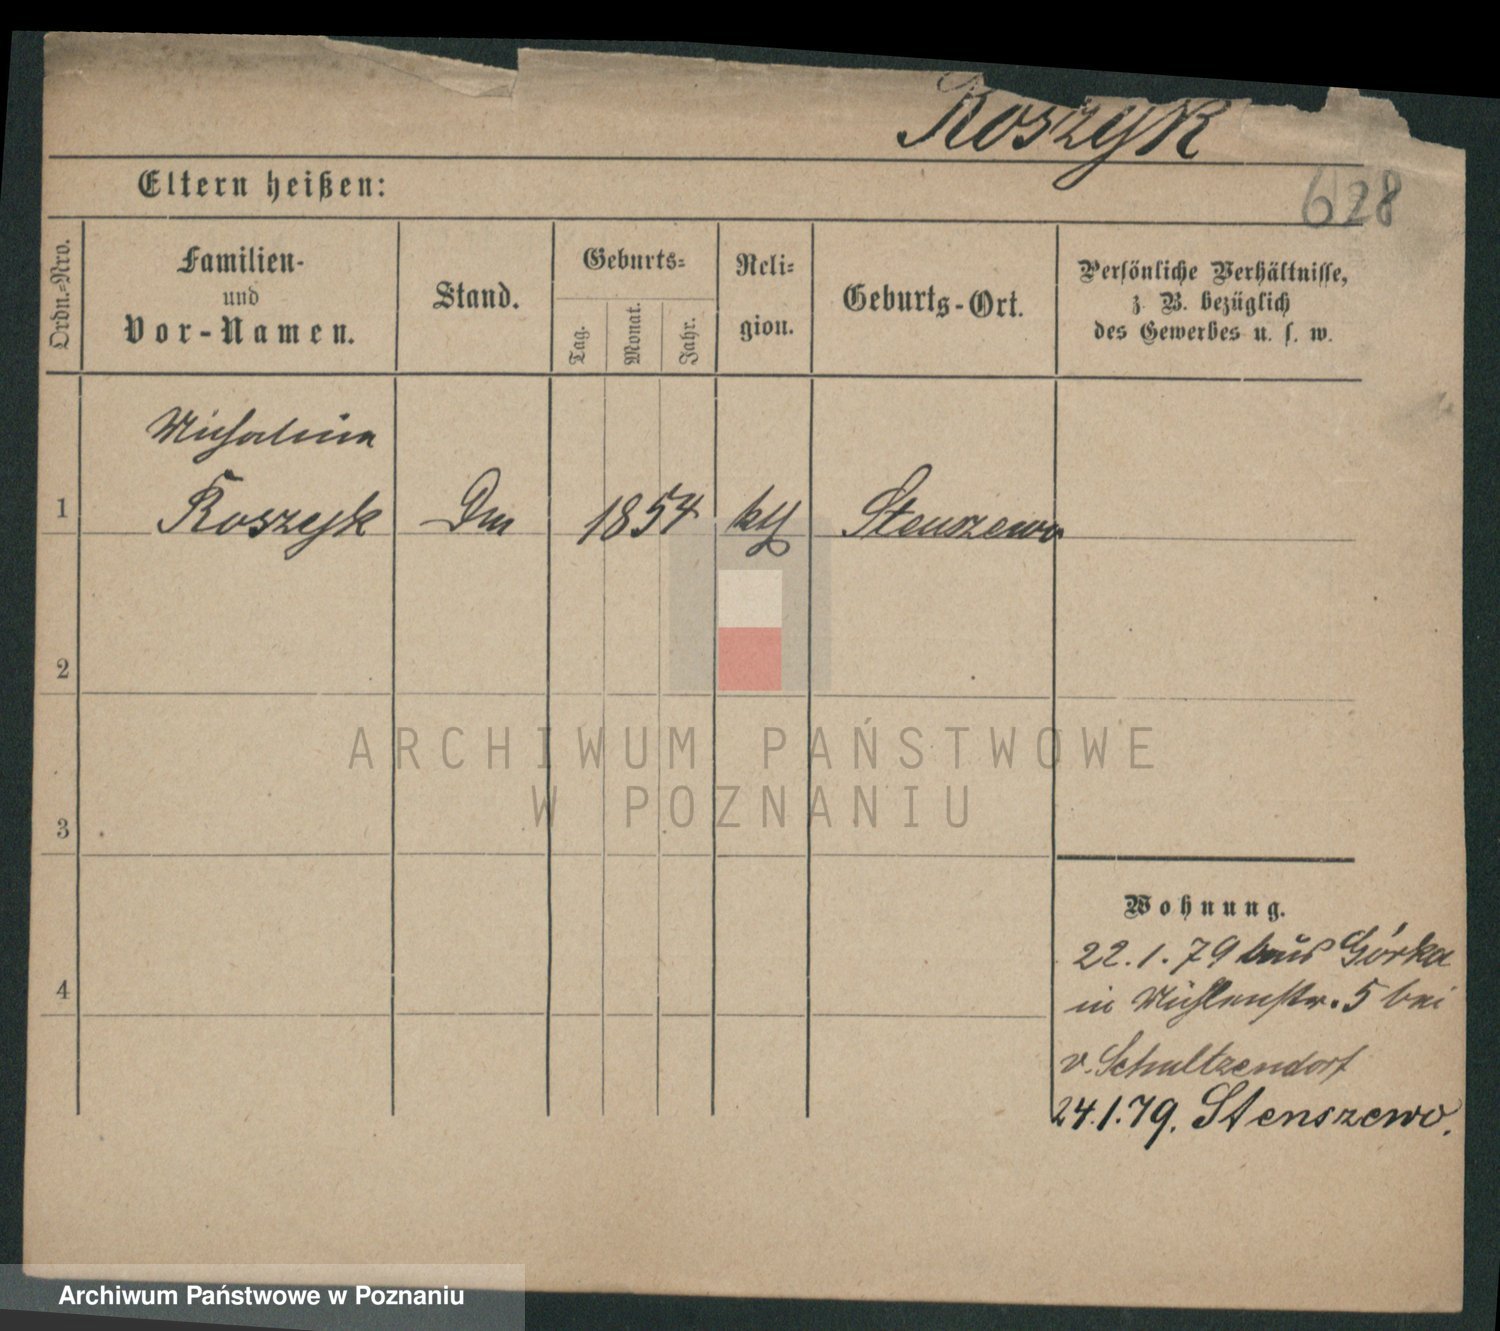 Koszyk
Eltern heißen:
628
Ordn.-Nro.
Familien-
und
Vor-Namen.
Stand.
Geburts-
Tag.
Monat.
Jahr.
Reli-
gion.
Geburts-Ort.
Persönliche Verhältnisse,
z. B. bezüglich
des Gewerbes u. s. w.
1
Michalina
Koszyk
Dm
1854
kth
Stenszewo
2
3
4
ARCHIWUM PAŃSTWOWE
W POZNANIU
Wohnung.
22.1.79 aus Górka
in Mühlenstr. 5 bei
v. Schultzendorf
24.1.79. Stenszewo.
Archiwum Państwowe w Poznaniu